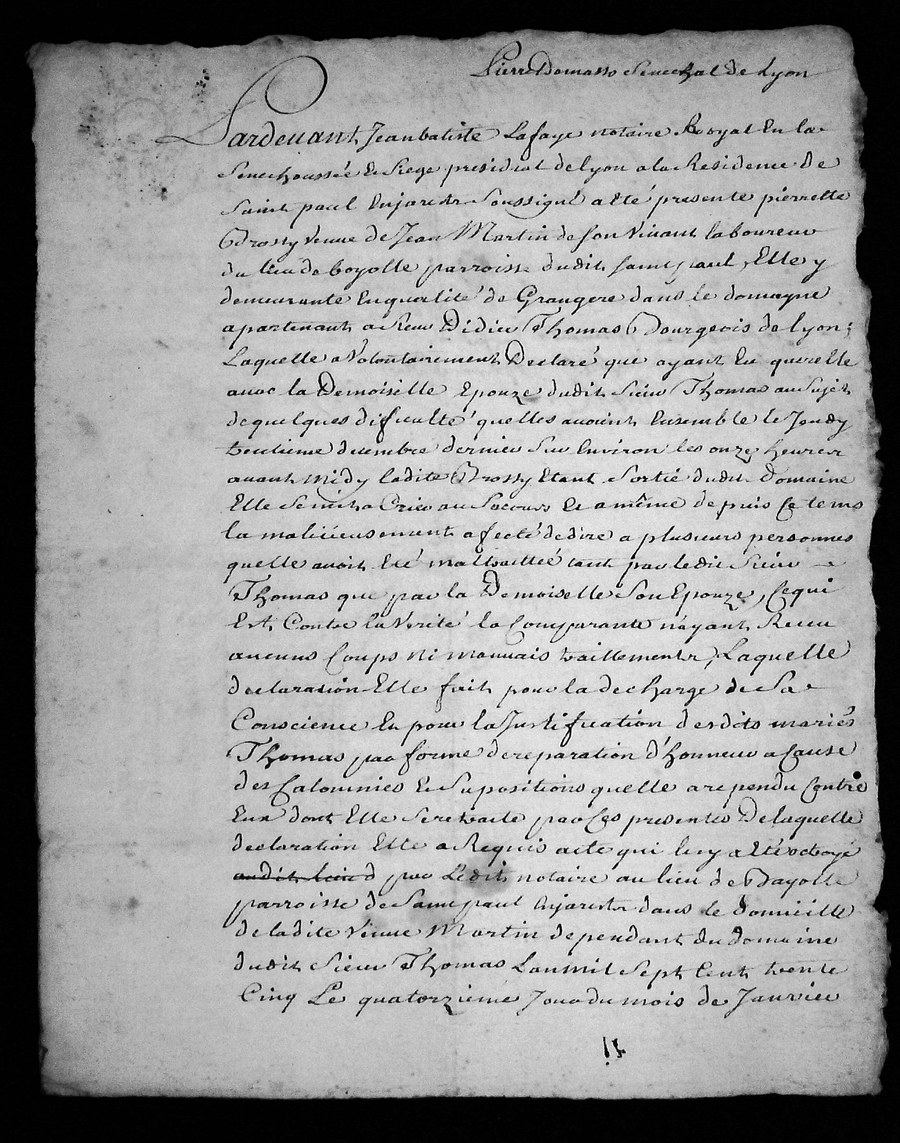 Pierre Domasso Senechal de Lyon
Pardevant Jean batiste Lafaye notaire Royal En la
Senechoussée & Siege presidial de Lyon a la Residence de
Saint paul Enjarestz Soussigné a Eté presente pierrette
Brossy veuve de Jean Martin de son vivant laboureur
du lieu de boyolle parroisse dudit saint paul, Elle y
demeurante En qualité de Grangere dans le domayne
apartenant a sieur Didier Thomas Bourgeois de Lyon;
Laquelle a volontairement Declaré que ayant Eu querelle
avec la Demoiselle Epouze dudit Sieur Thomas au Sujet
de quelques dificulté quelles avoint Ensemble le Jeudy
trentieme decembre dernier Sur Environ les onze heures
avant midy ladite Brossy Etant Sortie dudit Domaine
Elle Se mit a Crier au Secours Et a même depuis Ce tems
la malicieusement afecté de dire a plusieurs personnes
quelle avoit Eté maltraittée tant par ledit Sieur
Thomas que par la Demoiselle Son Epouze, Ce qui
Est Contre la Verité la Comparante n'ayant Receu
aucuns Coups ni mauvais traittements, Laquelle
declaration Elle fait pour la decharge de Sa
Conscience Eu pour la Justification desdits mariés
Thomas par forme de reparation d'honneur a Cause
des Calomnies & Supositions quelle a rependu Contre
Eux dont Elle Se retracte par Ces presentes De laquelle
declaration Elle a Requis acte qui luy a Eté octroyé
audit lieu d par Ledit notaire au lieu de Bayolle
parroisse de Saint paul Enjarestz dans le domicille
de ladite Veuve Martin dependant du domaine
dudit Sieur Thomas Lan mil Sept Cent trente
Cinq Le quatorzieme Jour du mois de Janvier